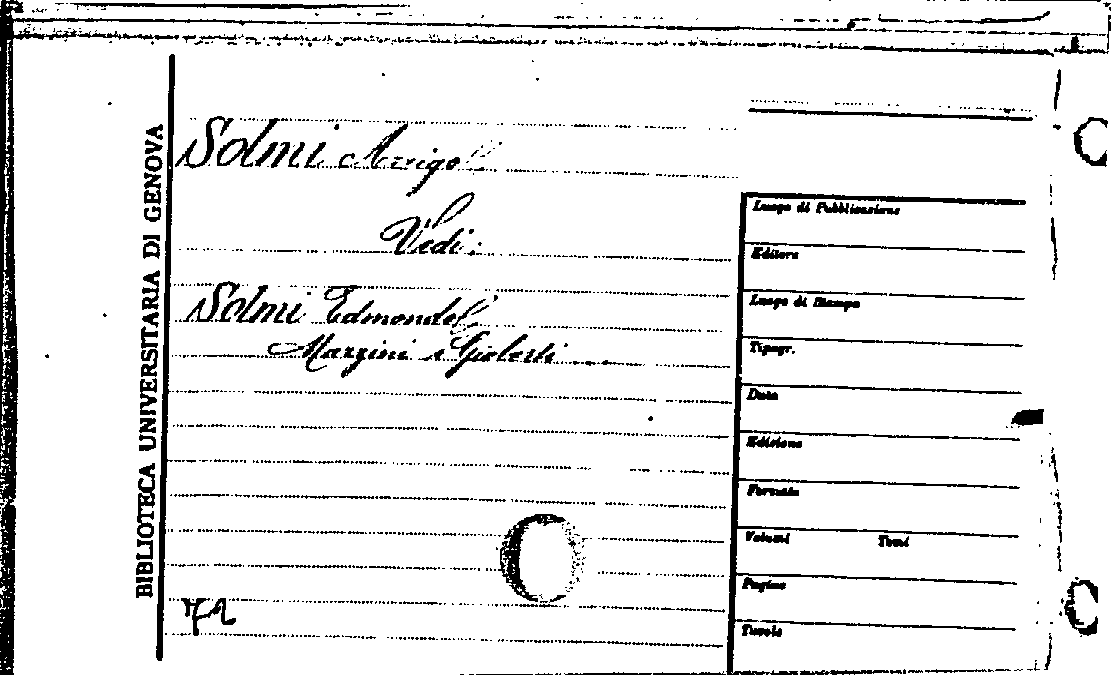 BIBLIOTECA UNIVERSITARIA DI GENOVA
Solmi Arrigo
Vedi:
Solmi Edmondo
Mazzini e Gioberti
Luogo di Pubblicazione
Editore
Luogo di Stampa
Tipogr.
Data
Edizione
Formato
Volumi Tomi
Pagine
Tavole